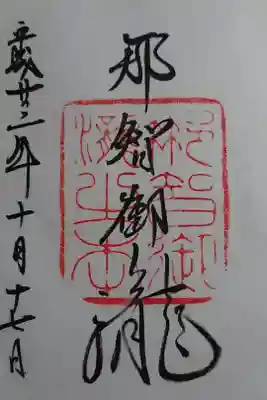 那智御瀧
平成廿二年十月十七日
那智御
瀧之